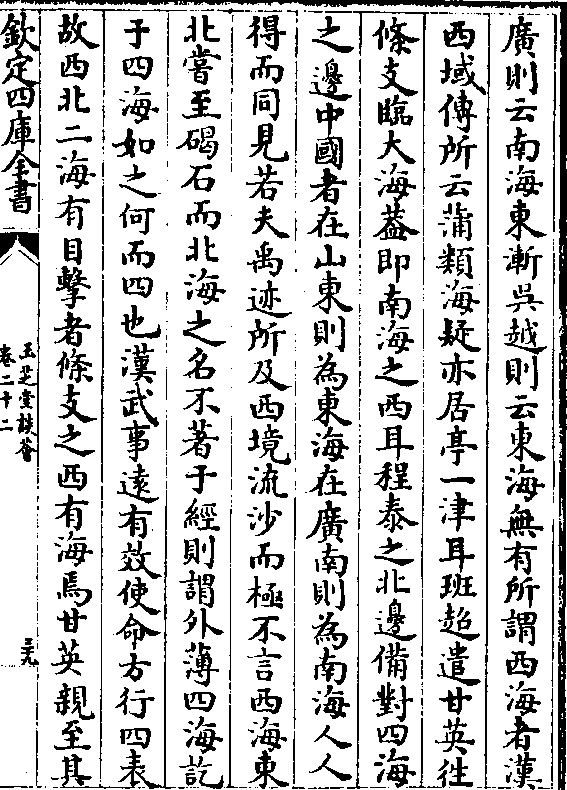 廣則云南海東漸吳越則云東海無有所謂西海者漢
西域傳所云蒲類海疑亦居亭一津耳班超遣甘英往
條支臨大海葢即南海之西耳程泰之北邊備對四海
之邊中國者在山東則為東海在廣南則為南海人人
得而同見若夫禹迹所及西境流沙而極不言西海東
北嘗至碣石而北海之名不著于經則謂外薄四海訖
于四海如之何而四也漢武事逺有效使命方行四表
故西北二海有目擊者條支之西有海焉甘英親至其
欽定四庫全書
玉芝堂談薈
卷二十二
三九